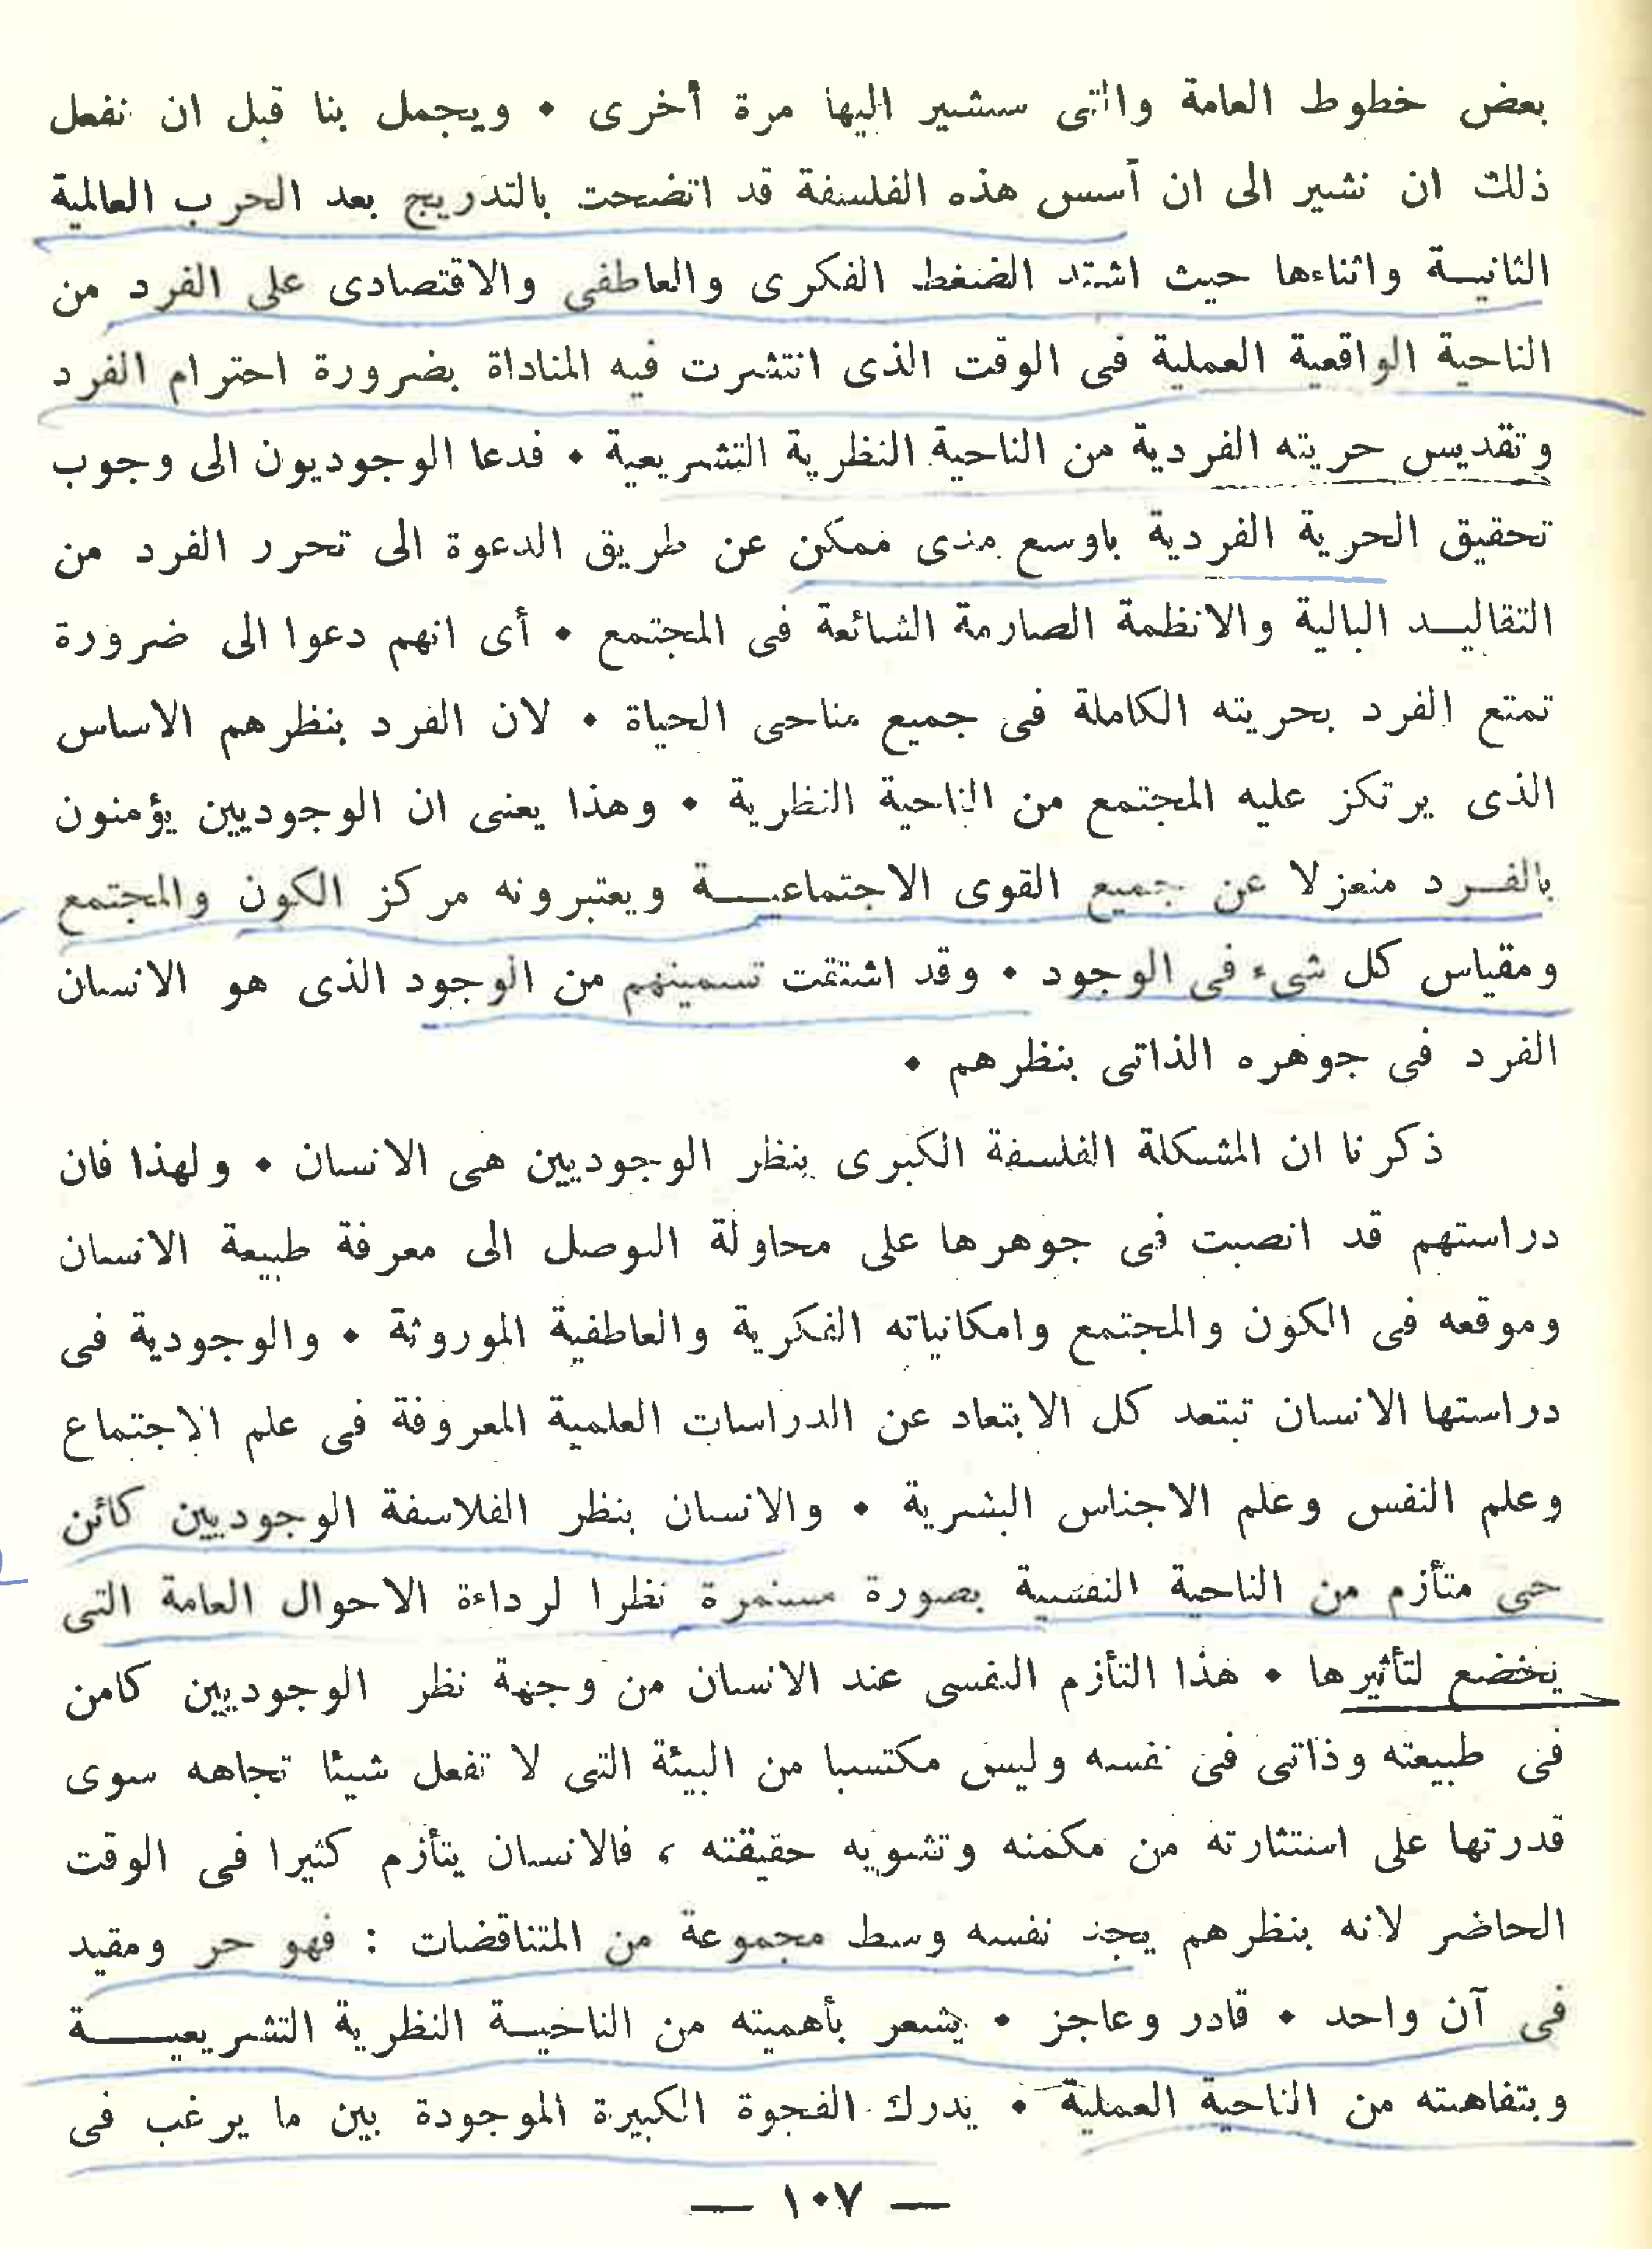 بعض خطوط العامة والتى سنشير اليها مرة أخرى • ويجمل بنا قبل ان نفعل
ذلك ان نشير الى ان أسس هذه الفلسفة قد اتضحت بالتدريج بعد الحرب العالمية
الثانيـــة واثناءها حيث اشتد الضغط الفكرى والعاطفى والاقتصادى على الفرد من
الناحية الواقعية العملية فى الوقت الذى انتشرت فيه المناداة بضرورة احترام الفرد
وتقديس حريته الفردية من الناحية النظرية التشريعية • فدعا الوجوديون الى وجوب
تحقيق الحرية الفردية باوسع مدى ممكن عن طريق الدعوة الى تحرر الفرد من
التقاليـــد البالية والانظمة الصارمة الشائعة فى المجتمع • أى انهم دعوا الى ضرورة
تمتع الفرد بحريته الكاملة فى جميع مناحى الحياة • لان الفرد بنظرهم الاساس
الذى يرتكز عليه المجتمع من الناحية النظرية • وهذا يعنى ان الوجوديين يؤمنون
بالفـــرد منعزلا عن جميع القوى الاجتماعيـــة ويعتبرونه مركز الكون والمجتمع
ومقياس كل شىء فى الوجود • وقد اشتقت تسميتهم من الوجود الذى هو الانسان
الفرد فى جوهره الذاتى بنظرهم •
ذكرنا ان المشكلة الفلسفة الكبرى بنظر الوجوديين هى الانسان • ولهذا فان
دراستهم قد انصبت فى جوهرها على محاولة التوصل الى معرفة طبيعة الانسان
وموقعه فى الكون والمجتمع وامكانياته الفكرية والعاطفية الموروثة • والوجودية فى
دراستها الانسان تبتعد كل الابتعاد عن الدراسات العلمية المعروفة فى علم الاجتماع
وعلم النفس وعلم الاجناس البشرية • والانسان بنظر الفلاسفة الوجوديين كائن
حى متأزم من الناحية النفسية بصورة مستمرة نظرا لرداءة الاحوال العامة التى
يخضع لتأثيرها • هذا التأزم النفسى عند الانسان من وجهة نظر الوجوديين كامن
فى طبيعته وذاتى فى نفسه وليس مكتسبا من البيئة التى لا تفعل شيئا تجاهه سوى
قدرتها على استثارته من مكمنه وتشويه حقيقته ، فالانسان يتأزم كثيرا فى الوقت
الحاضر لانه بنظرهم يجد نفسه وسط مجموعة من المتناقضات : فهو حر ومقيد
فى آن واحد • قادر وعاجز • يشعر بأهميته من الناحيـــة النظرية التشريعيـــة
وبتفاهته من الناحية العملية • يدرك الفجوة الكبيرة الموجودة بين ما يرغب فى
— ١٠٧ —